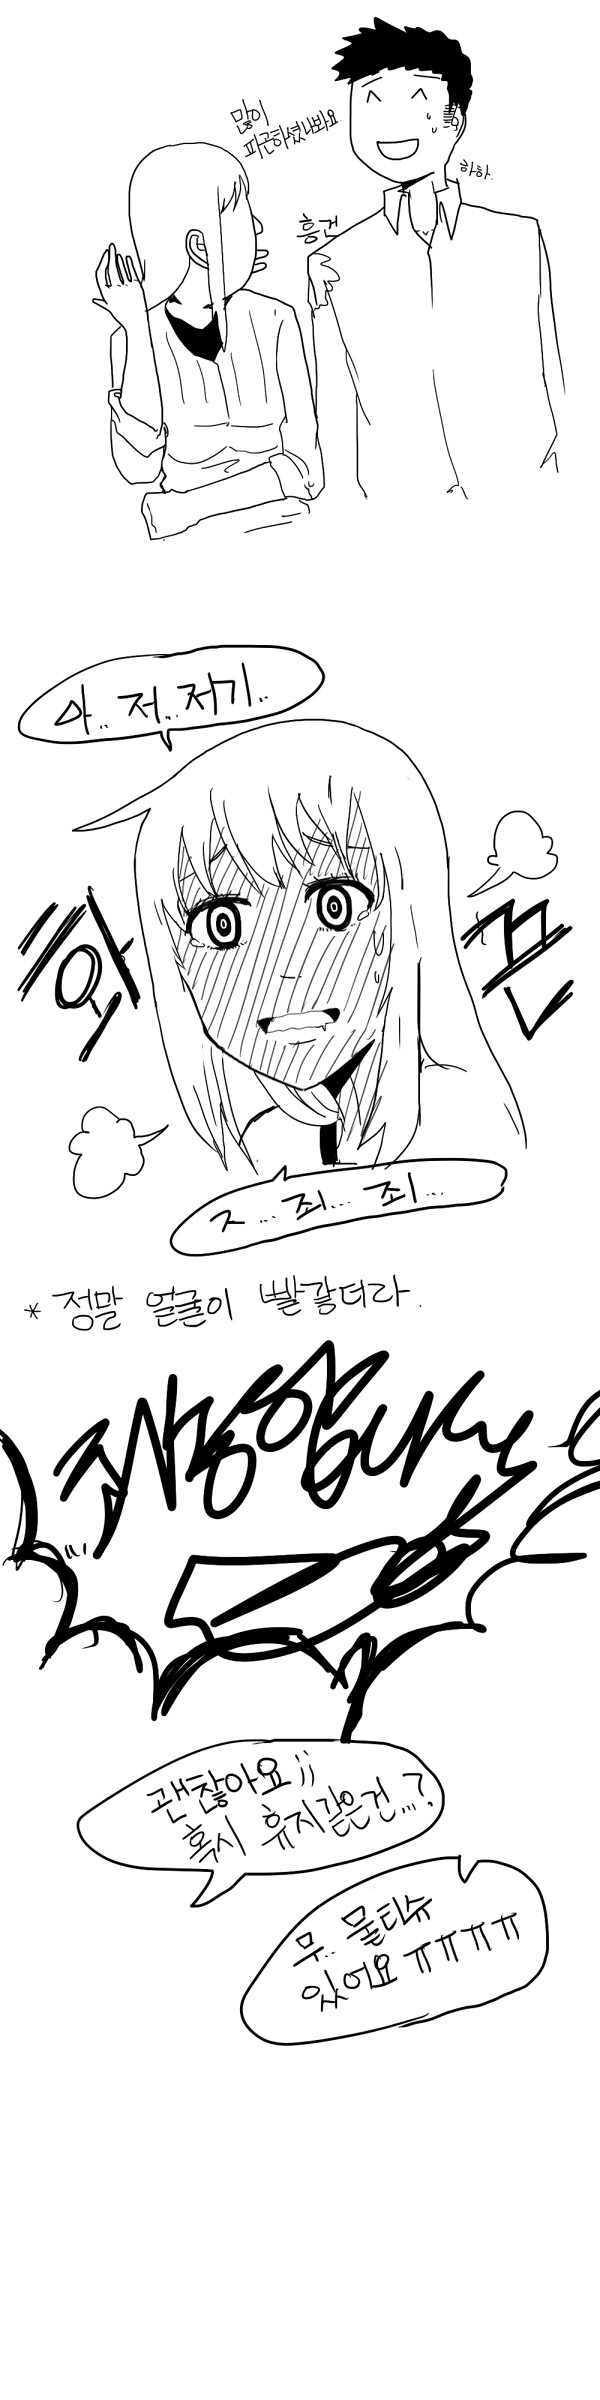 많이
피곤하셨나봐요
하하.
흥건
아.. 저.. 저기..
화끈
ㅈ... 죄... 죄...
* 정말 얼굴이 빨갛더라.
죄송합니다
괜찮아요;;
혹시 휴지같은건...?
무.. 물티슈
있어요 ㅠㅠㅠㅠ